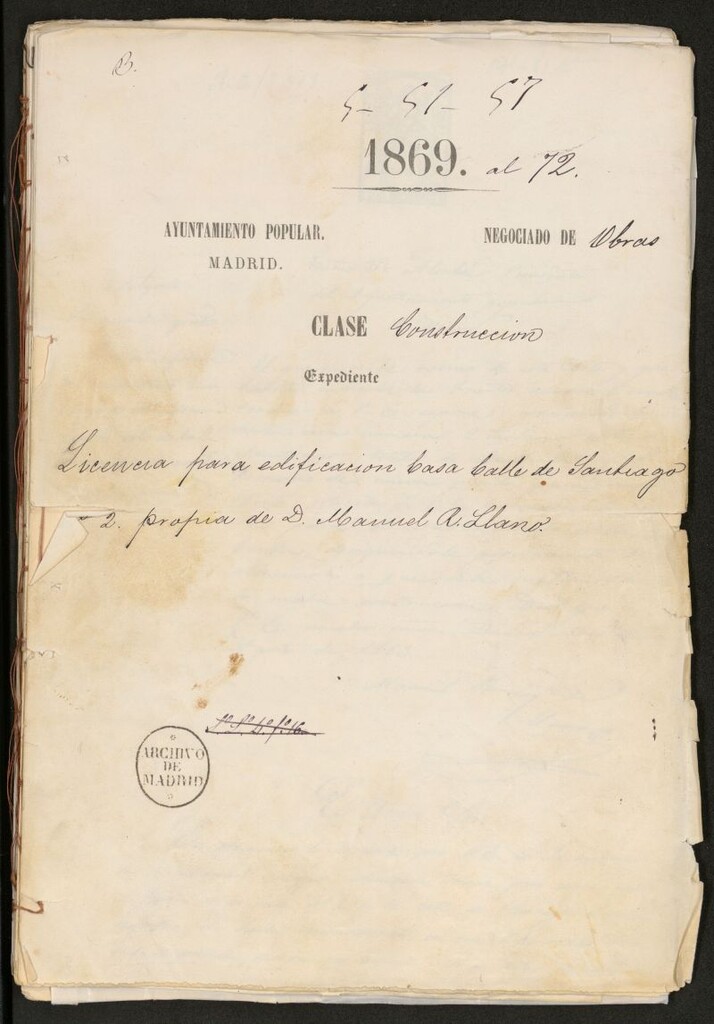 B.
5-51-57
1869. al 72.
AYUNTAMIENTO POPULAR.
MADRID.
NEGOCIADO DE Obras
CLASE Construccion
Expediente
Licencia para edificacion Casa Calle de Santiago
2. propia de D. Manuel R. Llano.
ARCHIVO
DE
MADRID